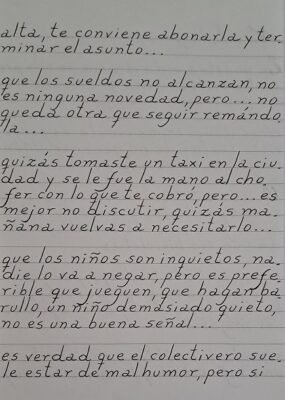 alta, te conviene abonarla y ter-
minar el asunto...
que los sueldos no alcanzan, no
es ninguna novedad, pero... no
queda otra que seguir remándo
la...
quizás tomaste un taxi en la ciu-
dad y se le fue la mano al cho-
fer con lo que te cobró, pero... es
mejor no discutir, quizás ma-
ñana vuelvas a necesitarlo...
que los niños son inquietos, na-
die lo va a negar, pero es prefe-
rible que jueguen, que hagan ba-
rullo, un niño demasiado quieto,
no es una buena señal...
es verdad que el colectivero sue-
le estar de mal humor, pero si